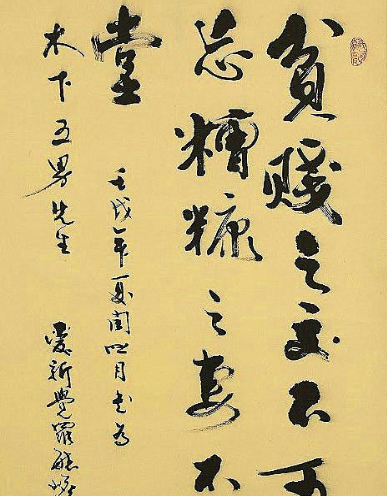 貧賤之交不可
忘糟糠之妻不
堂
壬戌年夏閏四月書為
木下五男先生
愛新覺羅毓嶦